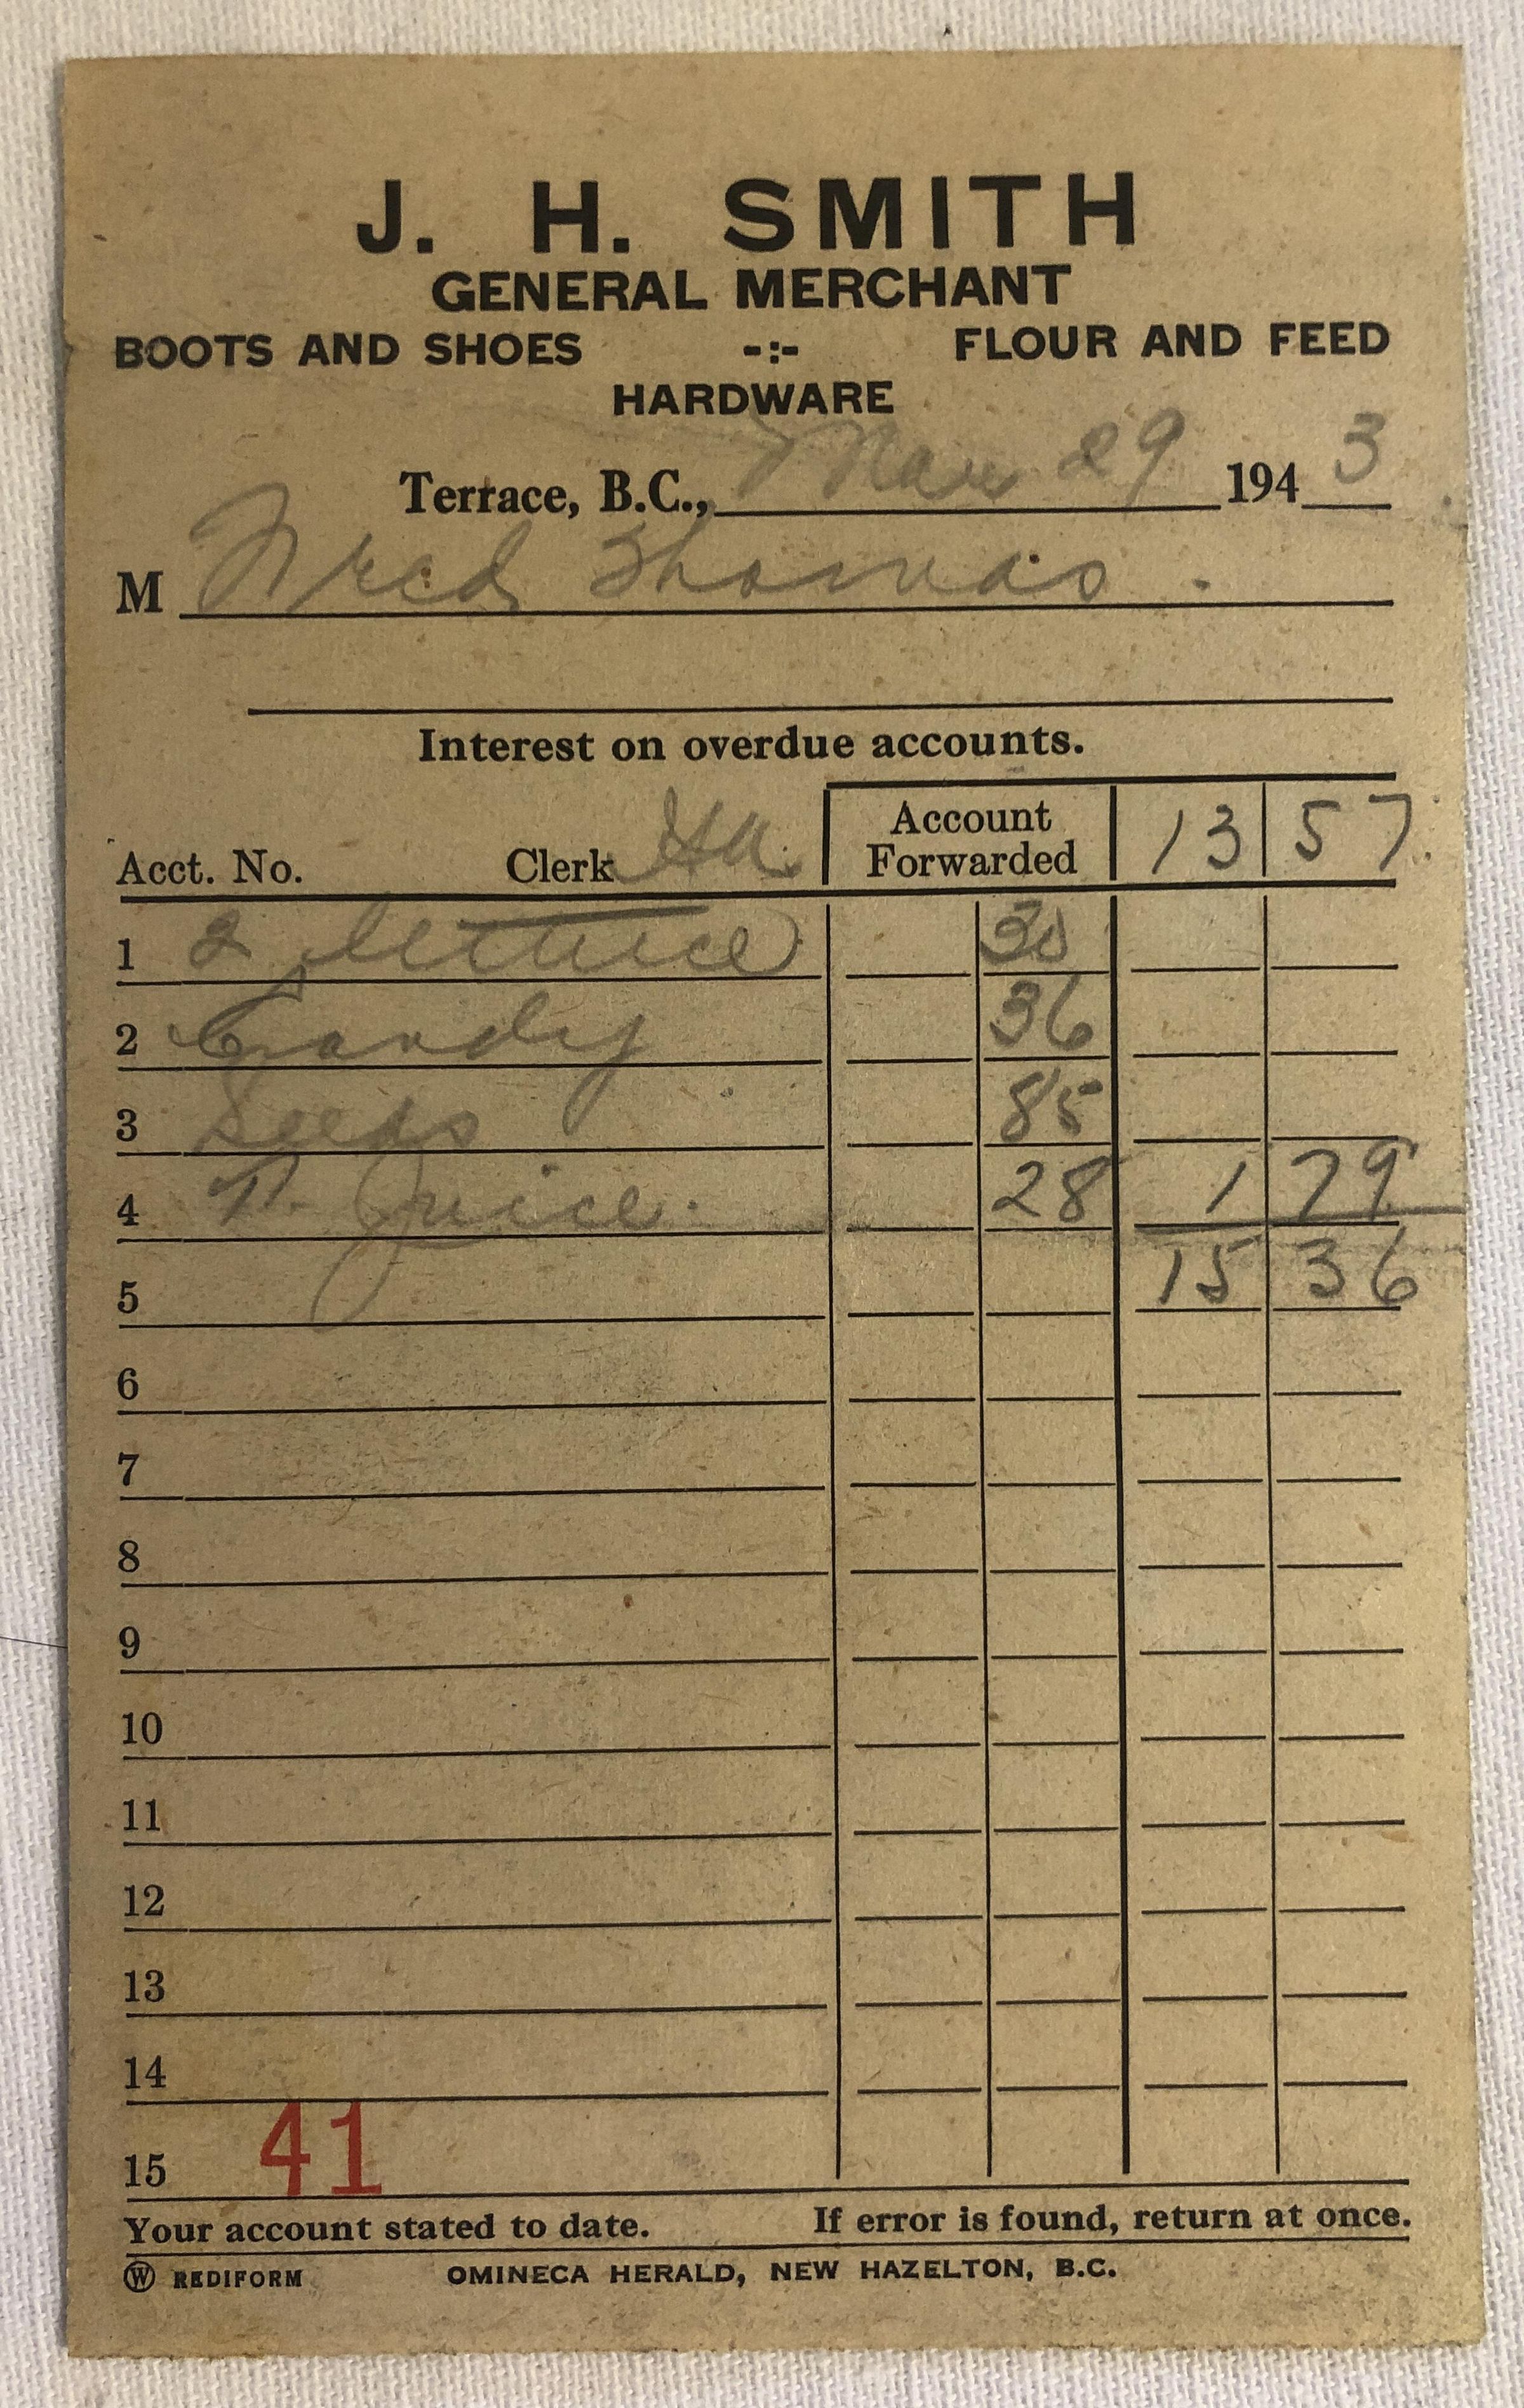 J. H. SMITH
GENERAL MERCHANT
BOOTS AND SHOES -:- FLOUR AND FEED
HARDWARE
Terrace, B.C., Mar 29 194 3
M Fred Thomas.
Interest on overdue accounts.
Acct. No. Clerk Account Forwarded 13 57
1 2 lettuce 30
2 Candy 36
3 Seeds 85
4 T. Juice. 28 1 79
5 15 36
6
7
8
9
10
11
12
13
14
15 41
Your account stated to date. If error is found, return at once.
W REDIFORM OMINECA HERALD, NEW HAZELTON, B.C.